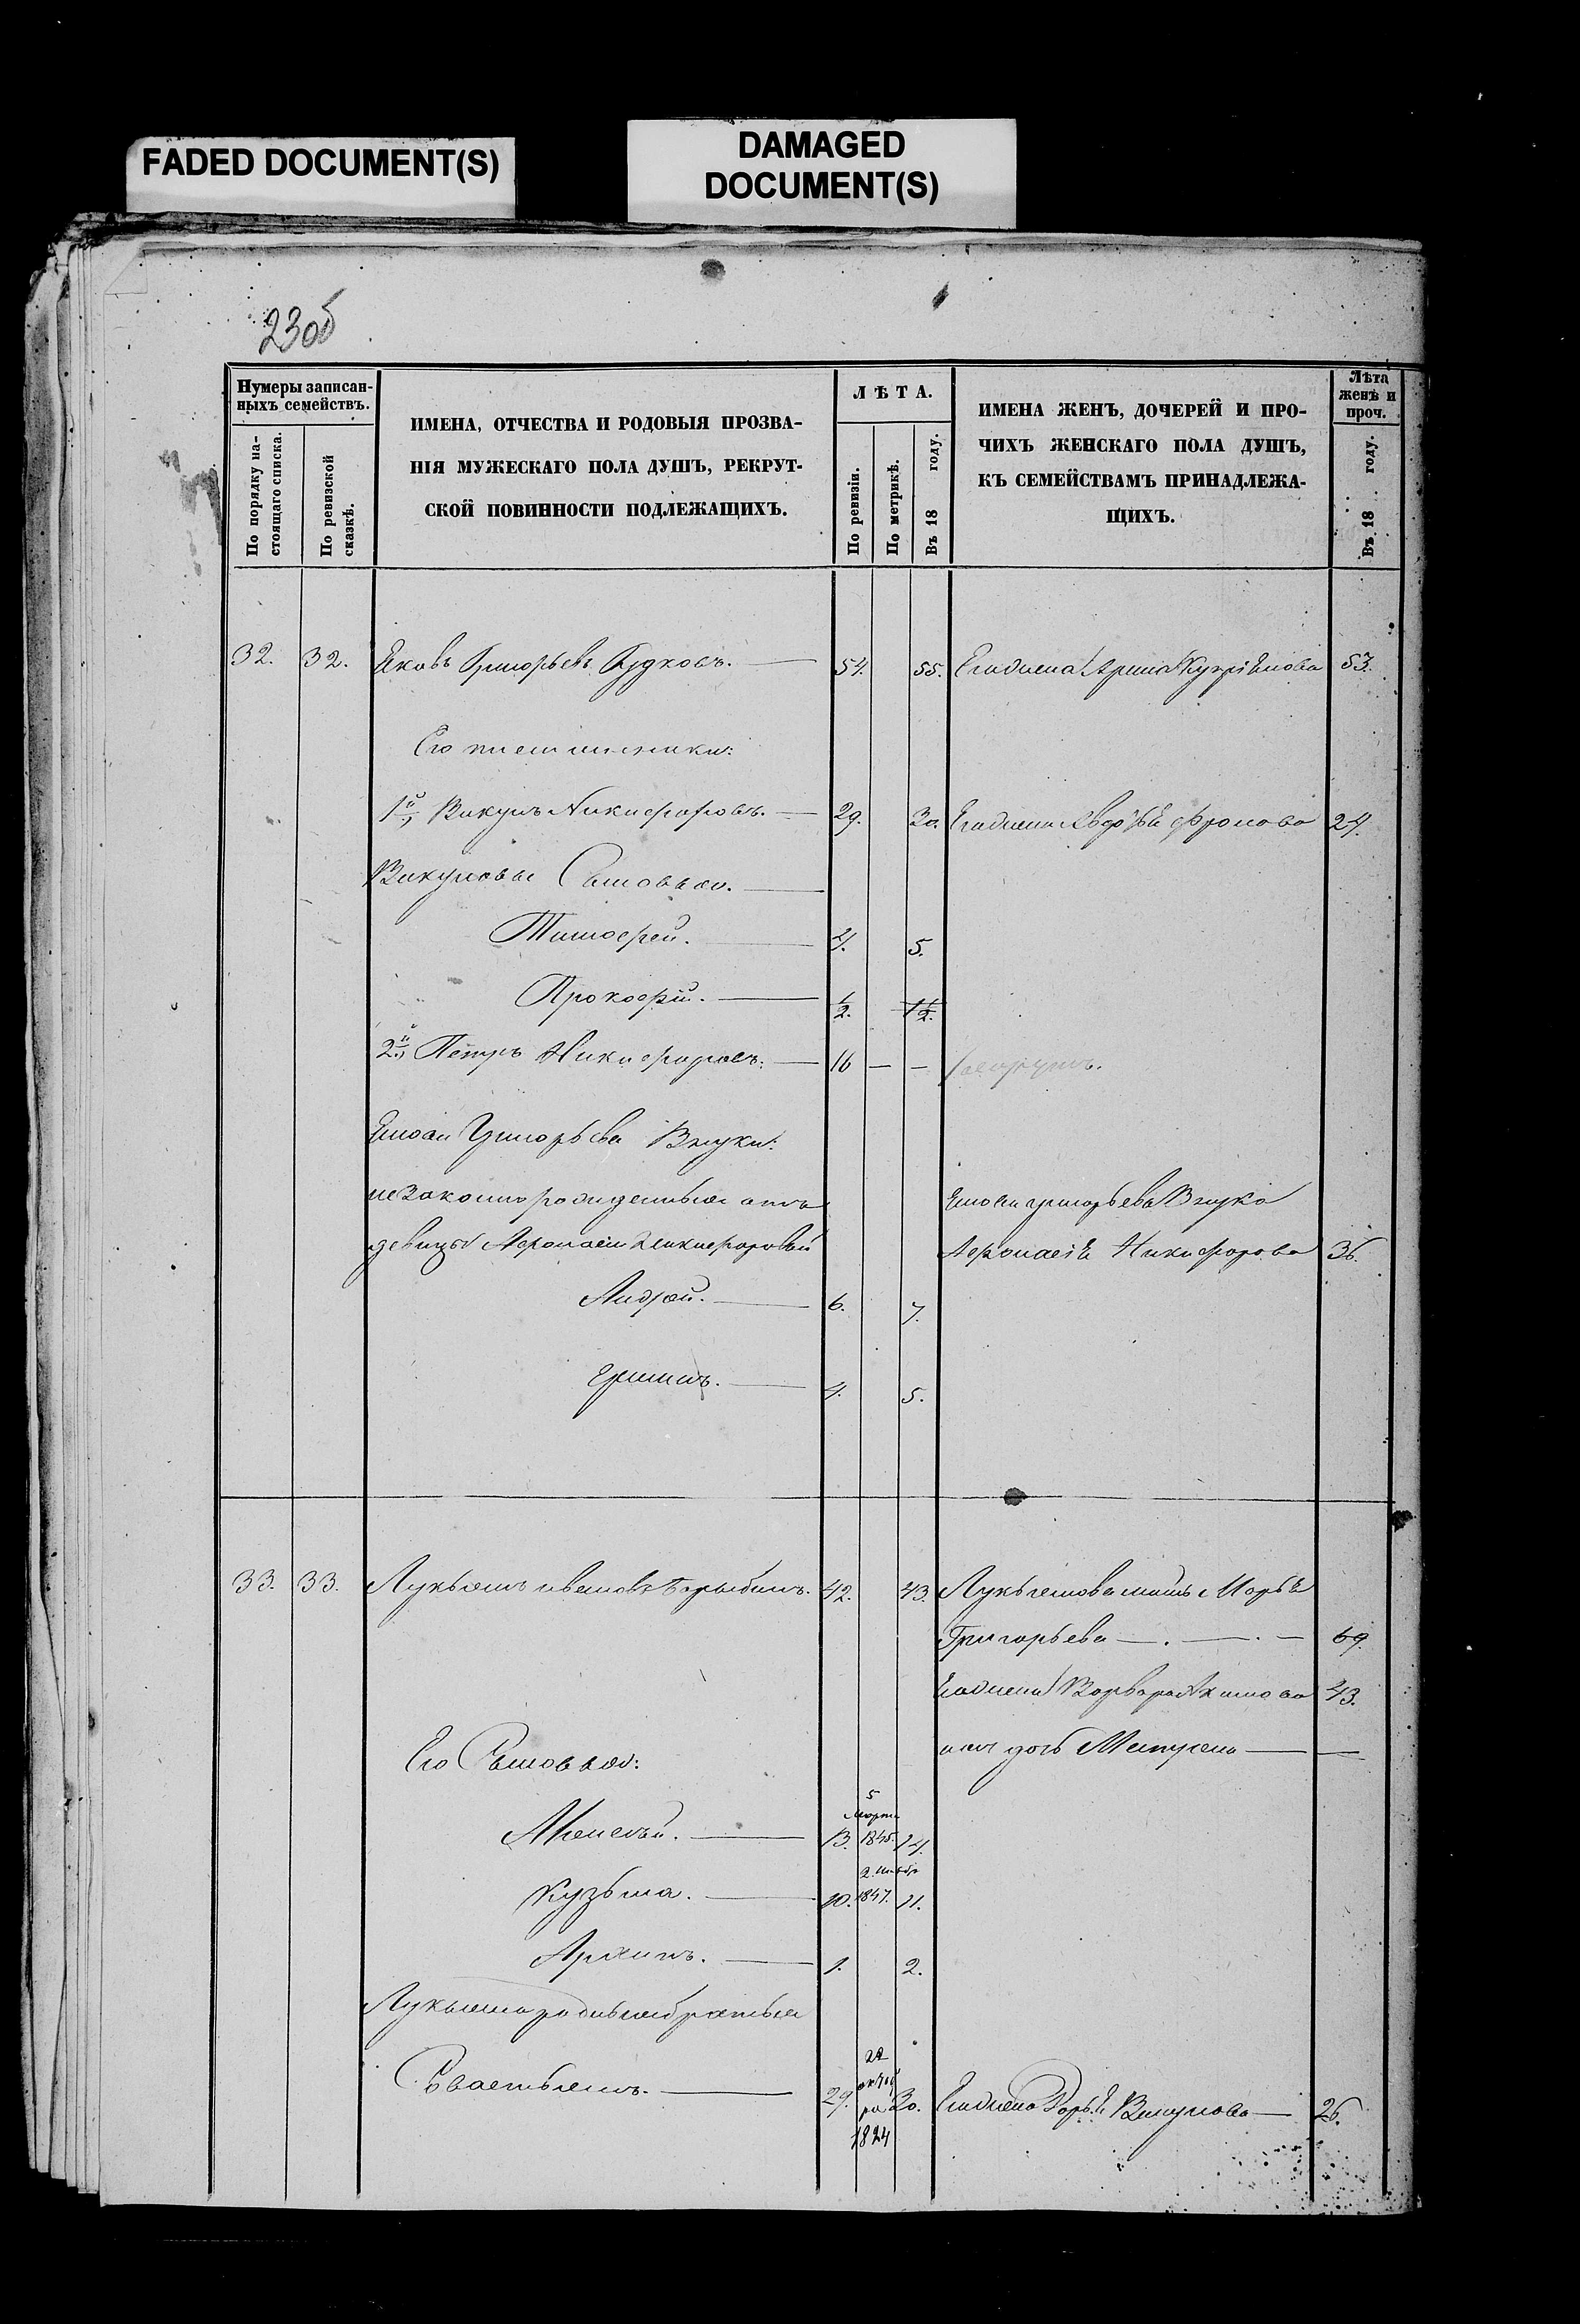 FADED DOCUMENT(S)
DAMAGED
DOCUMENT(S)
230б
Нумеры записан-
ныхъ семействъ.
По порядку на-
стоящаго списка.
По ревизской
сказкѣ.
ИМЕНА, ОТЧЕСТВА И РОДОВЫЯ ПРОЗВА-
НІЯ МУЖЕСКАГО ПОЛА ДУШЪ, РЕКРУТ-
СКОЙ ПОВИННОСТИ ПОДЛЕЖАЩИХЪ.
ЛѢТА.
По ревизіи.
По метрикѣ.
Въ 18 году.
ИМЕНА ЖЕНЪ, ДОЧЕРЕЙ И ПРО-
ЧИХЪ ЖЕНСКАГО ПОЛА ДУШЪ,
КЪ СЕМЕЙСТВАМЪ ПРИНАДЛЕЖА-
ЩИХЪ.
Лѣта
женъ и
проч.
Въ 18 году.
32. 32. Яковъ Григорьевъ 54. 55. Егожена Арина 53.
Его племянники:
1й, Викулъ Никифоровъ. 29. 30. Егожена Фролова 24.
Викуловы Сыновья.
Тимофей. 4. 5.
Прокофій. ½. 1½.
2й, Петръ Никифоровъ. 16 — —
Григорьева Внуки:
незаконнорожденные отъ
девицы Афонасіи Никифоровой
григорьева Внука
Афонасія Никифорова 36.
Андрей. 6. 7.
4. 5.
33. 33. Лукьянъ ивановъ 42. 43. Лукьянова мать Марья
Григорьева — . — . — 69.
Егожена Варвара Акимова 43.
ихъ дочь — —
Его Сыновья:
Алексѣй. 13. 5 марта 1845. 14.
Кузьма. 10. 1847. 11.
Архипъ. 1. 2.
Лукьяна родные братья
Савастьянъ. 29. 22 октяб ря 1824 30. Егожена Дарья 26.